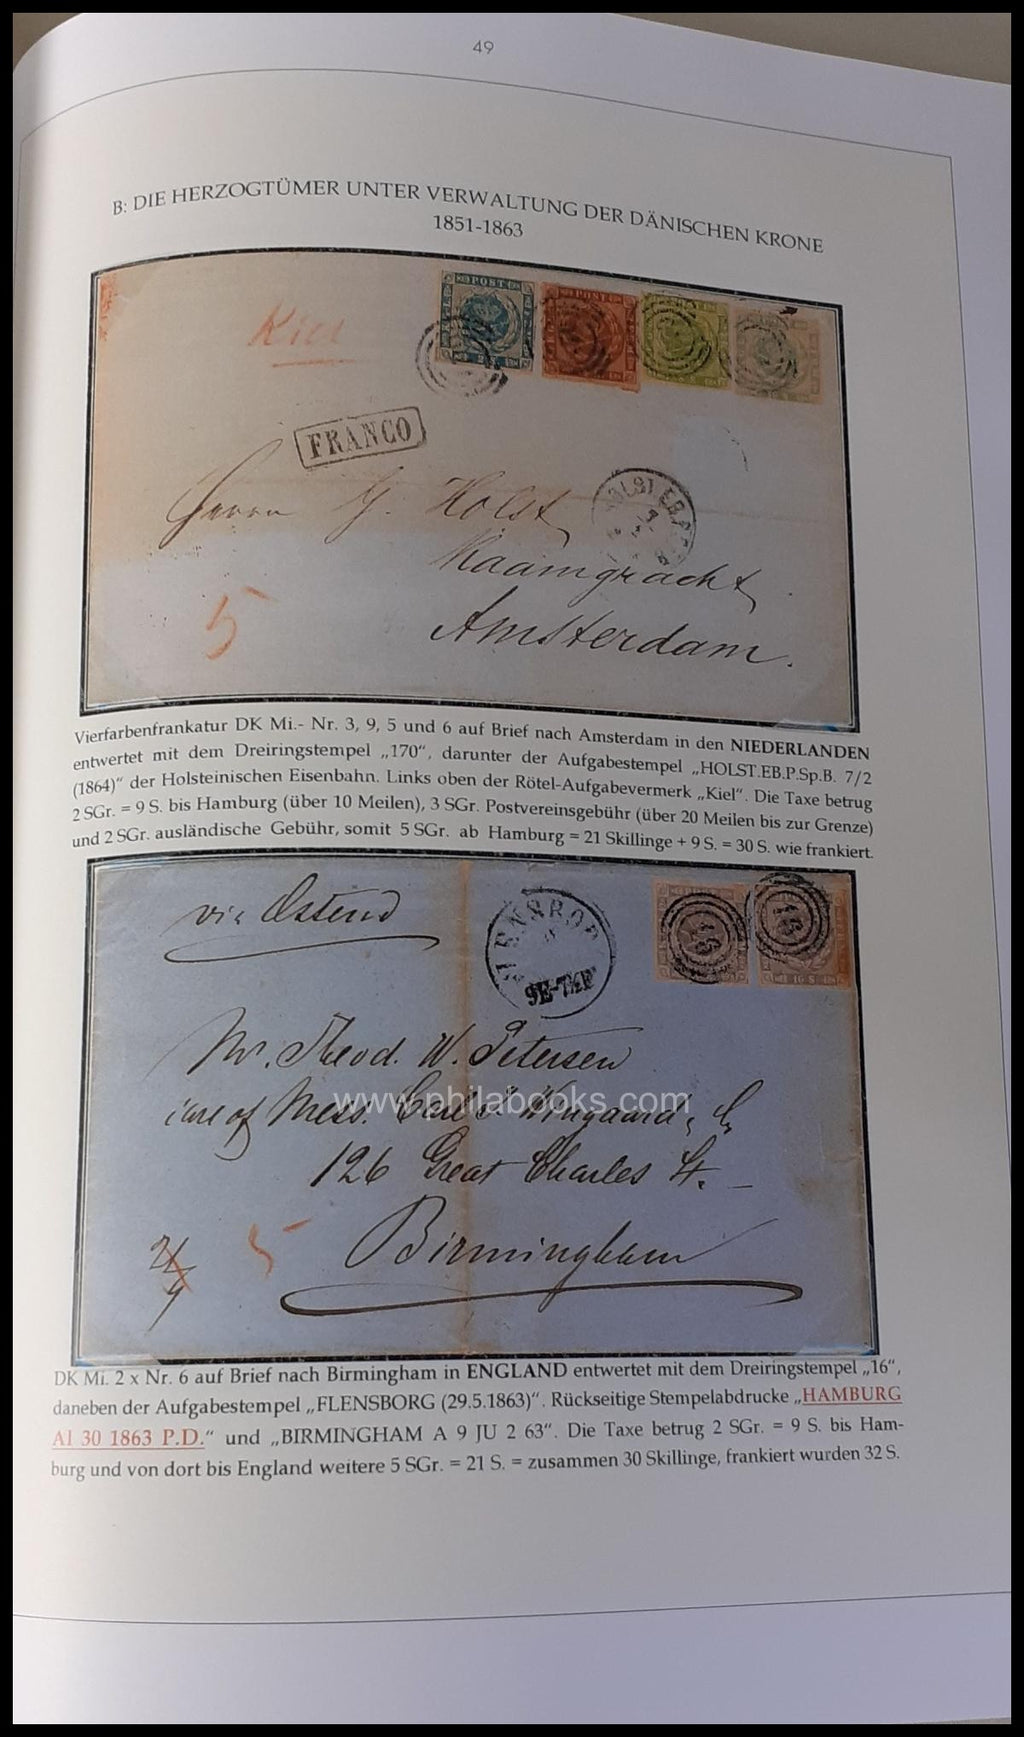 49
B: DIE HERZOGTÜMER UNTER VERWALTUNG DER DÄNISCHEN KRONE
1851-1863
Kiel
POST
2 S.
POST
FRANCO
Herrn G. Holst
HOLST.EB.P.
Raamgracht
5
Amsterdam.
Vierfarbenfrankatur DK Mi.- Nr. 3, 9, 5 und 6 auf Brief nach Amsterdam in den NIEDERLANDEN
entwertet mit dem Dreiringstempel „170“, darunter der Aufgabestempel „HOLST.EB.P.Sp.B. 7/2
(1864)“ der Holsteinischen Eisenbahn. Links oben der Rötel-Aufgabevermerk „Kiel“. Die Taxe betrug
2 SGr. = 9 S. bis Hamburg (über 10 Meilen), 3 SGr. Postvereinsgebühr (über 20 Meilen bis zur Grenze)
und 2 SGr. ausländische Gebühr, somit 5 SGr. ab Hamburg = 21 Skillinge + 9 S. = 30 S. wie frankiert.
via Ostend
FLENSBORG
16
16
16 S.
Mr. Theod. W. Petersen
care of Mess. Carl
www.philabooks.com
126 Great Charles St.
5
Birmingham
DK Mi. 2 x Nr. 6 auf Brief nach Birmingham in ENGLAND entwertet mit dem Dreiringstempel „16“,
daneben der Aufgabestempel „FLENSBORG (29.5.1863)“. Rückseitige Stempelabdrucke „HAMBURG
AI 30 1863 P.D.“ und „BIRMINGHAM A 9 JU 2 63“. Die Taxe betrug 2 SGr. = 9 S. bis Ham-
burg und von dort bis England weitere 5 SGr. = 21 S. = zusammen 30 Skillinge, frankiert wurden 32 S.